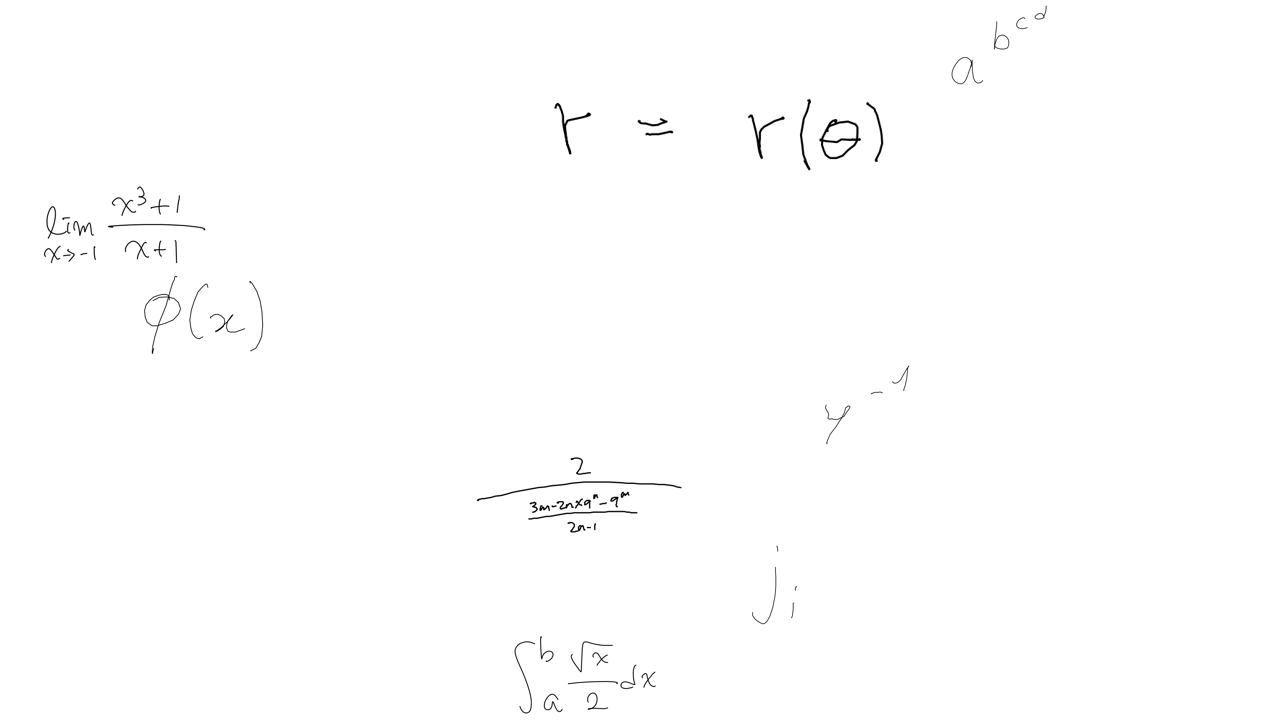 a^{b^{c^{d}}}
r = r(θ)
\lim_{x \to -1} \frac{x^3+1}{x+1}
\phi(x)
y^{-1}
\frac{2}{\frac{3m-2n \times 9^n - 9^m}{2n-1}}
j_i
\int_a^b \frac{\sqrt{x}}{2} dx